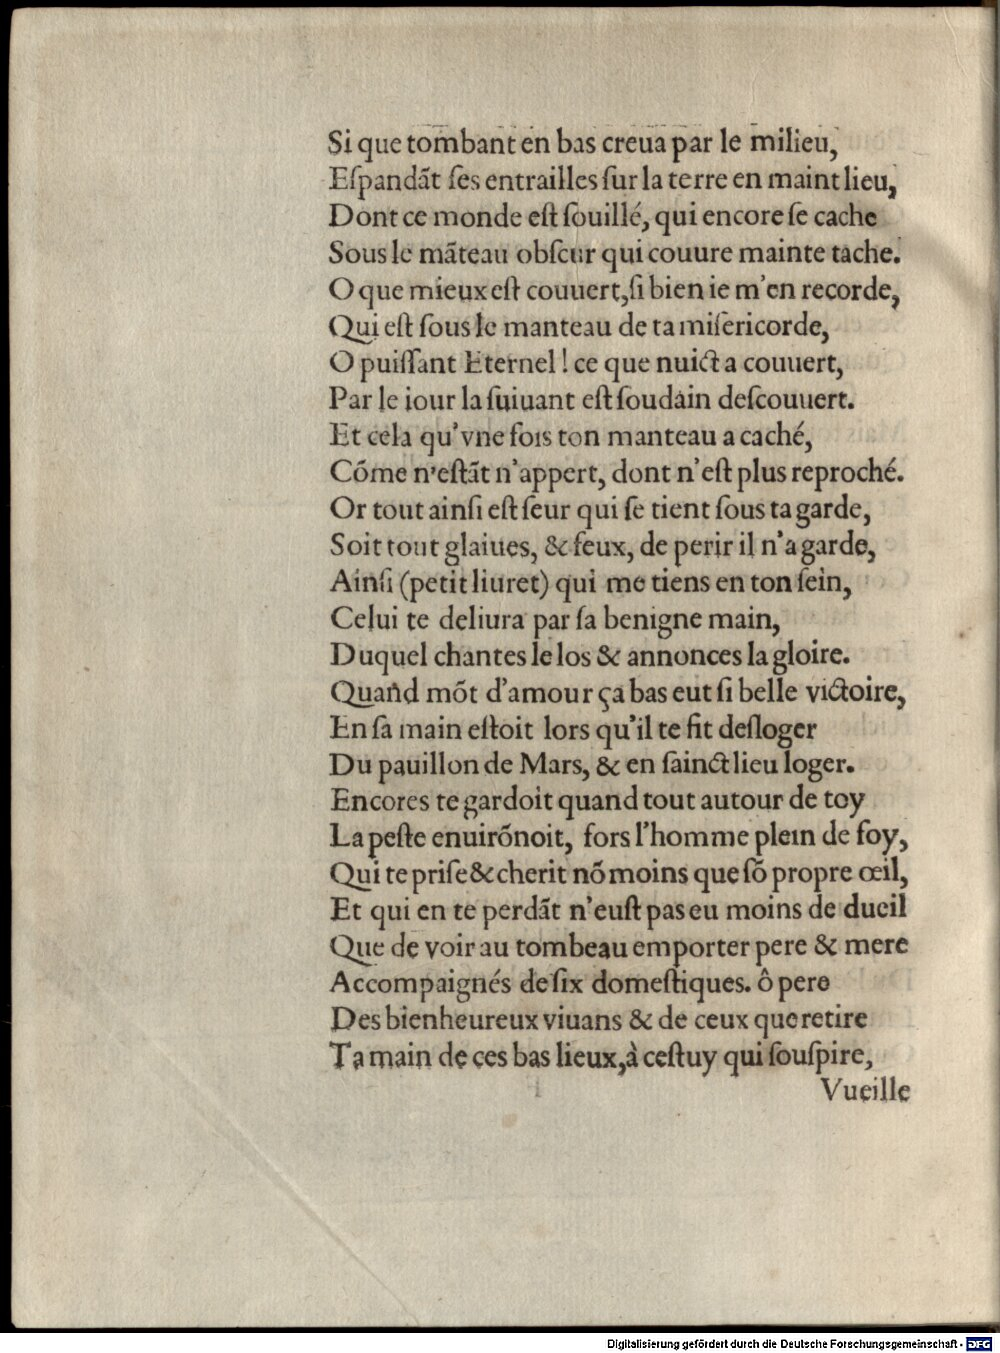 Si que tombant en bas creua par le milieu,
Eſpandãt ſes entrailles ſur la terre en maint lieu,
Dont ce monde eſt ſouillé, qui encore ſe cache
Sous le mãteau obſcur qui couure mainte tache.
O que mieux eſt couuert, ſi bien ie m'en recorde,
Qui eſt ſous le manteau de ta miſericorde,
O puiſſant Eternel! ce que nuict a couuert,
Par le iour la ſuiuant eſt ſoudain deſcouuert.
Et cela qu'vne fois ton manteau a caché,
Cõme n'eſtãt n'appert, dont n'eſt plus reproché.
Or tout ainſi eſt ſeur qui ſe tient ſous ta garde,
Soit tout glaiues, & feux, de perir il n'a garde,
Ainſi (petit liuret) qui me tiens en ton ſein,
Celui te deliura par ſa benigne main,
Duquel chantes le los & annonces la gloire.
Quand mõt d'amour ça bas eut ſi belle victoire,
En ſa main eſtoit lors qu'il te fit deſloger
Du pauillon de Mars, & en ſainct lieu loger.
Encores te gardoit quand tout autour de toy
La peſte enuirõnoit, fors l'homme plein de foy,
Qui te priſe & cherit nõ moins que ſõ propre œil,
Et qui en te perdãt n'euſt pas eu moins de dueil
Que de voir au tombeau emporter pere & mere
Accompaignés de ſix domeſtiques. ô pere
Des bienheureux viuans & de ceux que retire
Ta main de ces bas lieux, à ceſtuy qui ſouſpire,
Vueille
Digitalisierung gefördert durch die Deutsche Forschungsgemeinschaft - DFG